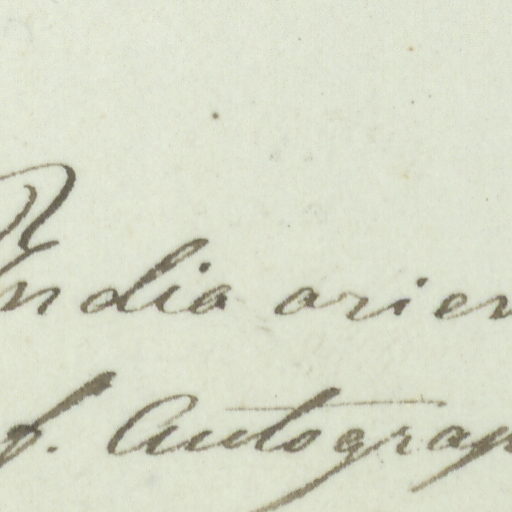 India orien
f. Autograp